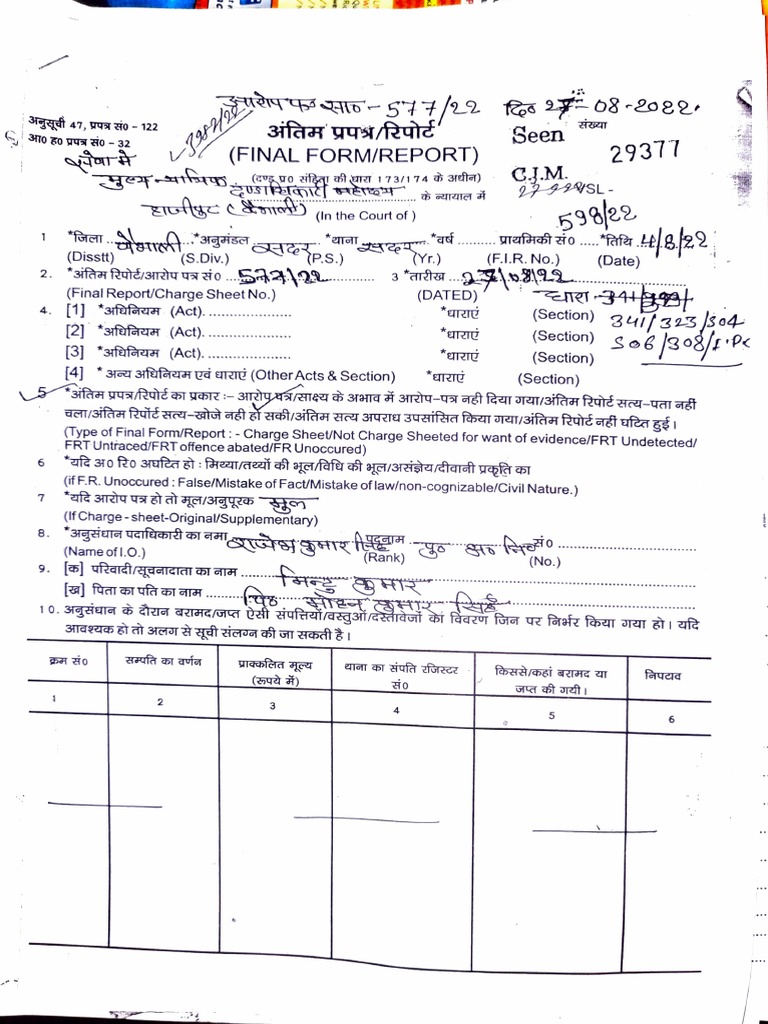 आरोप प० सं० - 577/22 दि० 27-08-2022.
अनुसूची 47, प्रपत्र सं० - 122
आ० ह० प्रपत्र सं० - 32
3982/22
अंतिम प्रपत्र/रिपोर्ट
(FINAL FORM/REPORT)
Seen
संख्या
29377
C.J.M.
सेवा मे
मुख्य न्यायिक दण्डाधिकारी महोदय
(दण्ड प्र० संहिता की धारा 173/174 के अधीन)
के न्यायाल में
हाजीपुर (वैशाली) (In the Court of )
598/22
1 *जिला वैशाली *अनुमंडल सदर *थाना सदर *वर्ष प्राथमिकी सं० *तिथि 4/8/22
(Disstt) (S.Div.) (P.S.) (Yr.) (F.I.R. No.) (Date)
2. *अंतिम रिपोर्ट/आरोप पत्र सं० 577/22 3 *तारीख 27/08/22
(Final Report/Charge Sheet No.) (DATED) धारा-
4. [1] *अधिनियम (Act). *धाराएं (Section) 341/323/304
[2] *अधिनियम (Act). *धाराएं (Section) 506/308/I.Pc
[3] *अधिनियम (Act). *धाराएं (Section)
[4] * अन्य अधिनियम एवं धाराएं (Other Acts & Section) *धाराएं (Section)
5 *अंतिम प्रपत्र/रिपोर्ट का प्रकार :- आरोप पत्र/साक्ष्य के अभाव में आरोप-पत्र नही दिया गया/अंतिम रिपोर्ट सत्य-पता नहीं
चला/अंतिम रिर्पोर्ट सत्य-खोजे नही हो सकी/अंतिम सत्य अपराध उपसांसित किया गया/अंतिम रिपोर्ट नहीं घटित हुई।
(Type of Final Form/Report : - Charge Sheet/Not Charge Sheeted for want of evidence/FRT Undetected/
FRT Untraced/FRT offence abated/FR Unoccured)
6 *यदि अ० रि० अघटित हो : मिथ्या/तथ्यों की भूल/विधि की भूल/असंज्ञेय/दीवानी प्रकृति का
(if F.R. Unoccured : False/Mistake of Fact/Mistake of law/non-cognizable/Civil Nature.)
7 *यदि आरोप पत्र हो तो मूल/अनुपूरक मुल
(If Charge - sheet-Original/Supplementary)
8. *अनुसंधान पदाधिकारी का नमा राजेश कुमार सिंह पदनाम पु० अ० नि० सं०
(Name of I.O.) (Rank) (No.)
9. [क] परिवादी/सूचनादाता का नाम मिन्टु कुमार
[ख] पिता का पति का नाम पि० मोहन कुमार सिंह
10. अनुसंधान के दौरान बरामद/जप्त ऐसी संपत्तियों/वस्तुओं/दस्तावेजों का विवरण जिन पर निर्भर किया गया हो। यदि
आवश्यक हो तो अलग से सूची संलग्न की जा सकती है।
क्रम सं० सम्पति का वर्णन प्राक्कलित मूल्य थाना का संपति रजिस्टर किससे/कहां बरामद या निपटाव
(रूपये में) सं० जप्त की गयी।
1 2 3 4 5 6